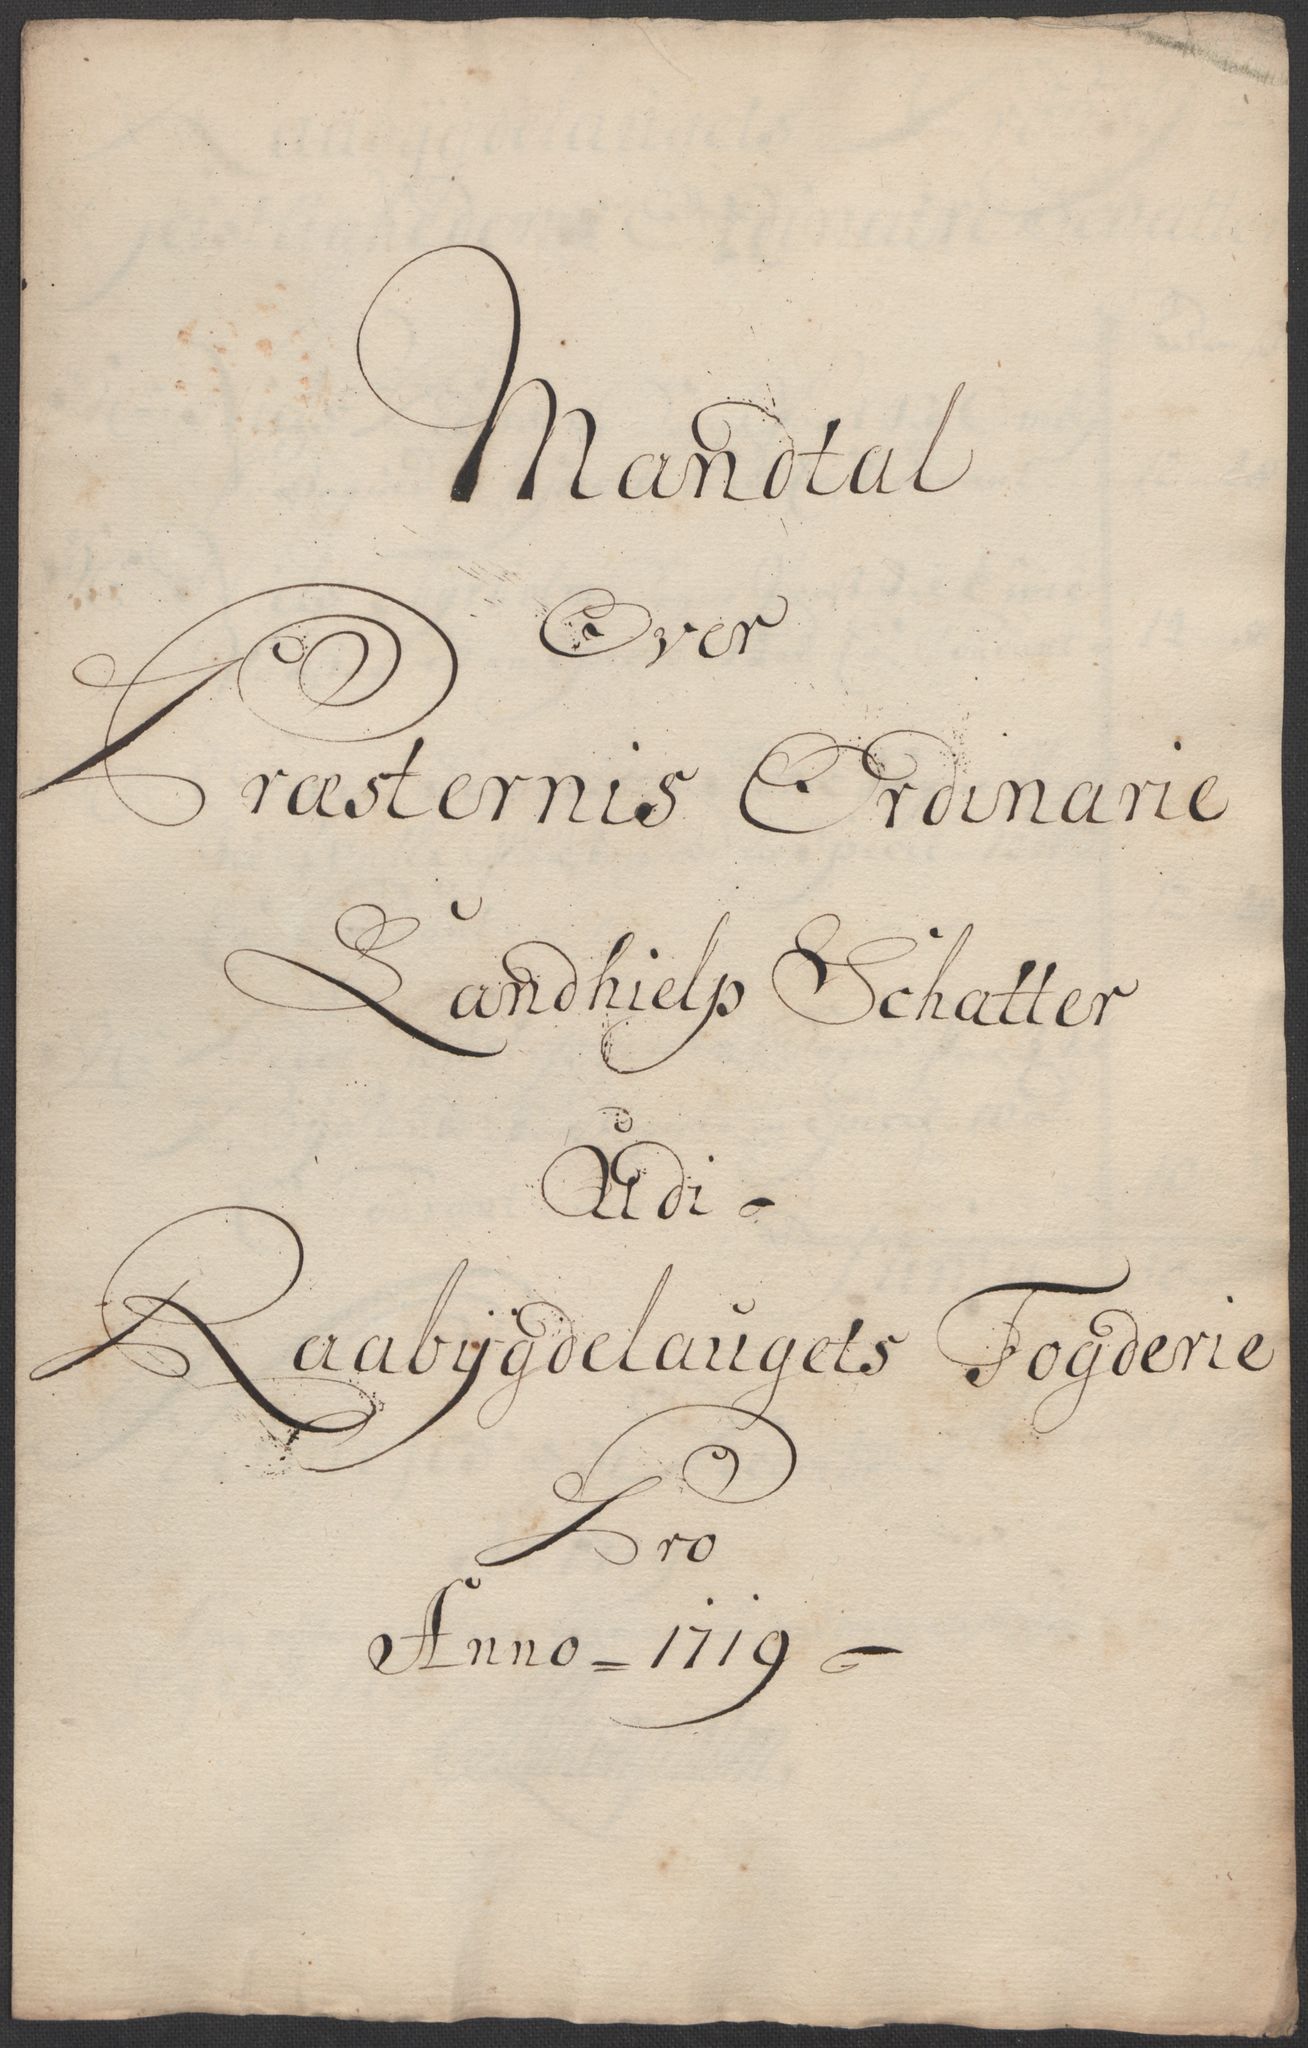 Mandtal
Over
Præsternis Ordinarie
Landhielp Schatter
Udi -
Raabÿgdelaugets Fogderie
Pro
Anno = 1719 -